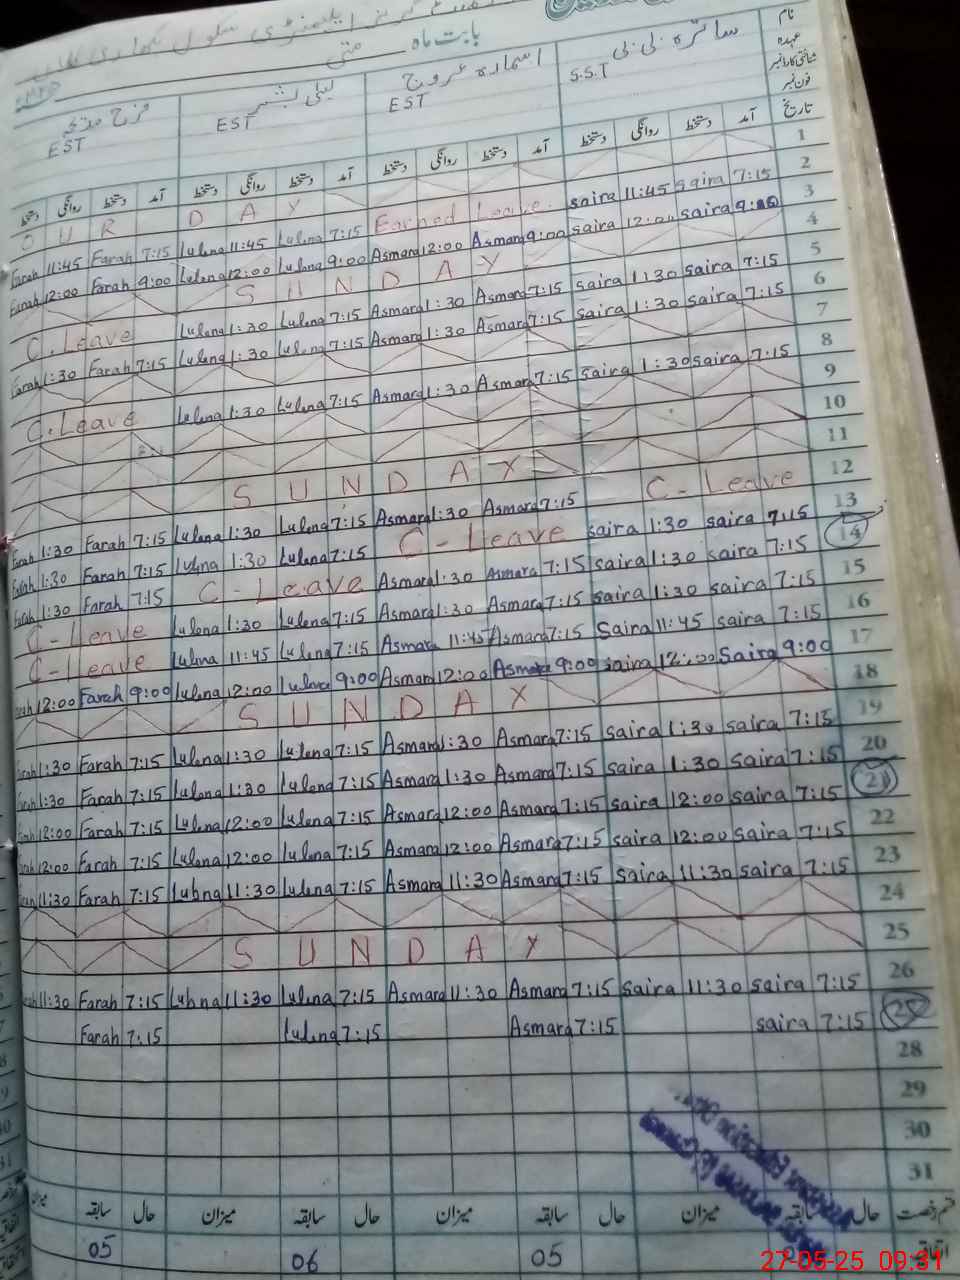 بابت ماہ مئی
نام عہدہ شناختی کارڈ نمبر فون نمبر
سائرہ بی بی S.S.T اسمارہ عروج EST لبنیٰ بشیر EST فرح EST
تاریخ آمد دستخط روانگی دستخط آمد دستخط روانگی دستخط آمد دستخط روانگی دستخط آمد دستخط روانگی دستخط
O U R D A Y 1
Farah 11:45 Farah 7:15 Lubna 11:45 Lubna 7:15 Earned Leave. saira 11:45 saira 7:15 2
Farah 12:00 Farah 9:00 Lubna 12:00 Lubna 9:00 Asmara 12:00 Asmara 9:00 saira 12:00 saira 9:00 3
S U N D A Y 4
C. Leave Lubna 1:30 Lubna 7:15 Asmara 1:30 Asmara 7:15 saira 1:30 saira 7:15 5
Farah 1:30 Farah 7:15 Lubna 1:30 Lubna 7:15 Asmara 1:30 Asmara 7:15 saira 1:30 saira 7:15 6
7
C. Leave Lubna 1:30 Lubna 7:15 Asmara 1:30 Asmara 7:15 saira 1:30 saira 7:15 8
9
10
S U N D A Y 11
Farah 1:30 Farah 7:15 Lubna 1:30 Lubna 7:15 Asmara 1:30 Asmara 7:15 C - Leave 12
Farah 1:30 Farah 7:15 Lubna 1:30 Lubna 7:15 C - Leave saira 1:30 saira 7:15 13
Farah 1:30 Farah 7:15 C - Leave Asmara 1:30 Asmara 7:15 saira 1:30 saira 7:15 14
C - Leave Lubna 1:30 Lubna 7:15 Asmara 1:30 Asmara 7:15 saira 1:30 saira 7:15 15
C - Leave Lubna 11:45 Lubna 7:15 Asmara 11:45 Asmara 7:15 Saira 11:45 saira 7:15 16
Farah 12:00 Farah 9:00 Lubna 12:00 Lubna 9:00 Asmara 12:00 Asmara 9:00 saira 12:00 Saira 9:00 17
S U N D A Y 18
Farah 1:30 Farah 7:15 Lubna 1:30 Lubna 7:15 Asmara 1:30 Asmara 7:15 saira 1:30 saira 7:15 19
Farah 1:30 Farah 7:15 Lubna 1:30 Lubna 7:15 Asmara 1:30 Asmara 7:15 saira 1:30 saira 7:15 20
Farah 12:00 Farah 7:15 Lubna 12:00 Lubna 7:15 Asmara 12:00 Asmara 7:15 saira 12:00 saira 7:15 21
Farah 12:00 Farah 7:15 Lubna 12:00 Lubna 7:15 Asmara 12:00 Asmara 7:15 saira 12:00 saira 7:15 22
Farah 11:30 Farah 7:15 Lubna 11:30 Lubna 7:15 Asmara 11:30 Asmara 7:15 saira 11:30 saira 7:15 23
24
S U N D A Y 25
Farah 11:30 Farah 7:15 Lubna 11:30 Lubna 7:15 Asmara 11:30 Asmara 7:15 saira 11:30 saira 7:15 26
Farah 7:15 Lubna 7:15 Asmara 7:15 saira 7:15
28
29
30
31
قسم رخصت حال سابقہ میزان حال سابقہ میزان حال سابقہ میزان حال سابقہ میزان
اتفاقیہ 05 06 05
27-05-25 09:31